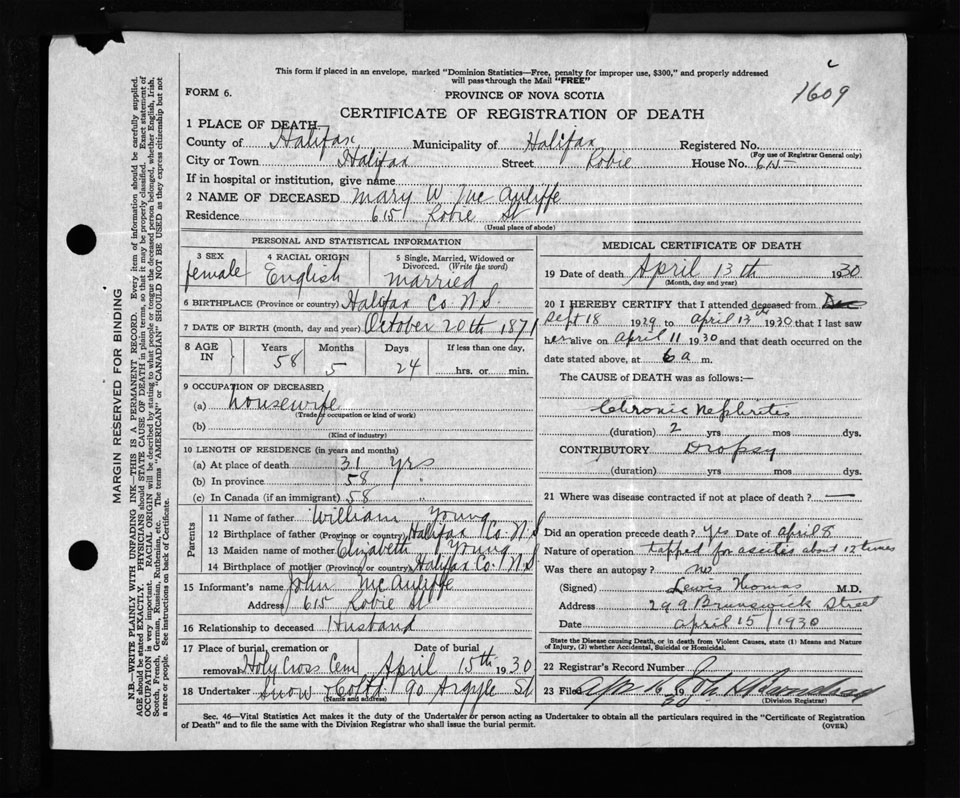 This form if placed in an envelope, marked "Dominion Statistics—Free, penalty for improper use, $300," and properly addressed
will pass through the Mail "FREE"
1609
FORM 6.
PROVINCE OF NOVA SCOTIA
CERTIFICATE OF REGISTRATION OF DEATH
1 PLACE OF DEATH
County of Halifax Municipality of Halifax Registered No.
(For use of Registrar General only)
City or Town Halifax Street Robie House No. 615
If in hospital or institution, give name
2 NAME OF DECEASED Mary W McAuliffe
Residence 615 Robie St
(Usual place of abode)
PERSONAL AND STATISTICAL INFORMATION
3 SEX 4 RACIAL ORIGIN 5 Single, Married, Widowed or
Divorced. (Write the word)
female English married
6 BIRTHPLACE (Province or country) Halifax Co N.S.
7 DATE OF BIRTH (month, day and year) October 20th 1871
8 AGE IN Years Months Days If less than one day,
58 5 24 hrs. or min.
9 OCCUPATION OF DECEASED
(a) housewife
(Trade, occupation or kind of work)
(b)
(Kind of industry)
10 LENGTH OF RESIDENCE (in years and months)
(a) At place of death 31 yrs
(b) In province 58 "
(c) In Canada (if an immigrant) 58 "
Parents
11 Name of father William Young
12 Birthplace of father (Province or country) Halifax Co. N.S
13 Maiden name of mother Elizabeth Young
14 Birthplace of mother (Province or country) Halifax Co. N.S.
15 Informant's name John McAuliffe
Address 615 Robie St
16 Relationship to deceased Husband
17 Place of burial, cremation or Date of burial
removal Holy Cross Cem April 15th 1930
18 Undertaker Snow & Co Ltd 90 Argyle St
(Name and address)
MEDICAL CERTIFICATE OF DEATH
19 Date of death April 13th 1930
(Month, day and year)
20 I HEREBY CERTIFY that I attended deceased from
Sept 18 1929 to April 13th 1930 that I last saw
her alive on April 11 1930 and that death occurred on the
date stated above, at 6 a m.
The CAUSE of DEATH was as follows:—
Chronic Nephritis
(duration) 2 yrs mos dys.
CONTRIBUTORY Dropsy
(duration) yrs. mos. dys.
21 Where was disease contracted if not at place of death? —
Did an operation precede death? yes Date of April 8
Nature of operation tapped for ascites about 12 times
Was there an autopsy? no
(Signed) Lewis Thomas M.D.
Address 299 Brunswick Street
Date April 15/1930
State the Disease causing Death, or in death from Violent Causes, state (1) Means and Nature
of Injury, (2) whether Accidental, Suicidal or Homicidal.
22 Registrar's Record Number
23 Filed 16 19 30
(Division Registrar)
Sec. 46—Vital Statistics Act makes it the duty of the Undertaker or person acting as Undertaker to obtain all the particulars required in the "Certificate of Registration
of Death" and to file the same with the Division Registrar who shall issue the burial permit.
(OVER)
MARGIN RESERVED FOR BINDING
N.B.—WRITE PLAINLY WITH UNFADING INK—THIS IS A PERMANENT RECORD. Every item of information should be carefully supplied.
AGE should be stated EXACTLY. PHYSICIANS should STATE CAUSE OF DEATH in plain terms, so that it may be properly classified. Exact statement of
OCCUPATION is very important. RACIAL ORIGIN will be described by stating to what people or tongue the deceased person belonged, whether English, Irish,
Scotch, French, German, Russian, Ruthenian, etc. The terms "AMERICAN" or "CANADIAN" SHOULD NOT BE USED as they express citizenship but not
a race or people. See instructions on back of Certificate.